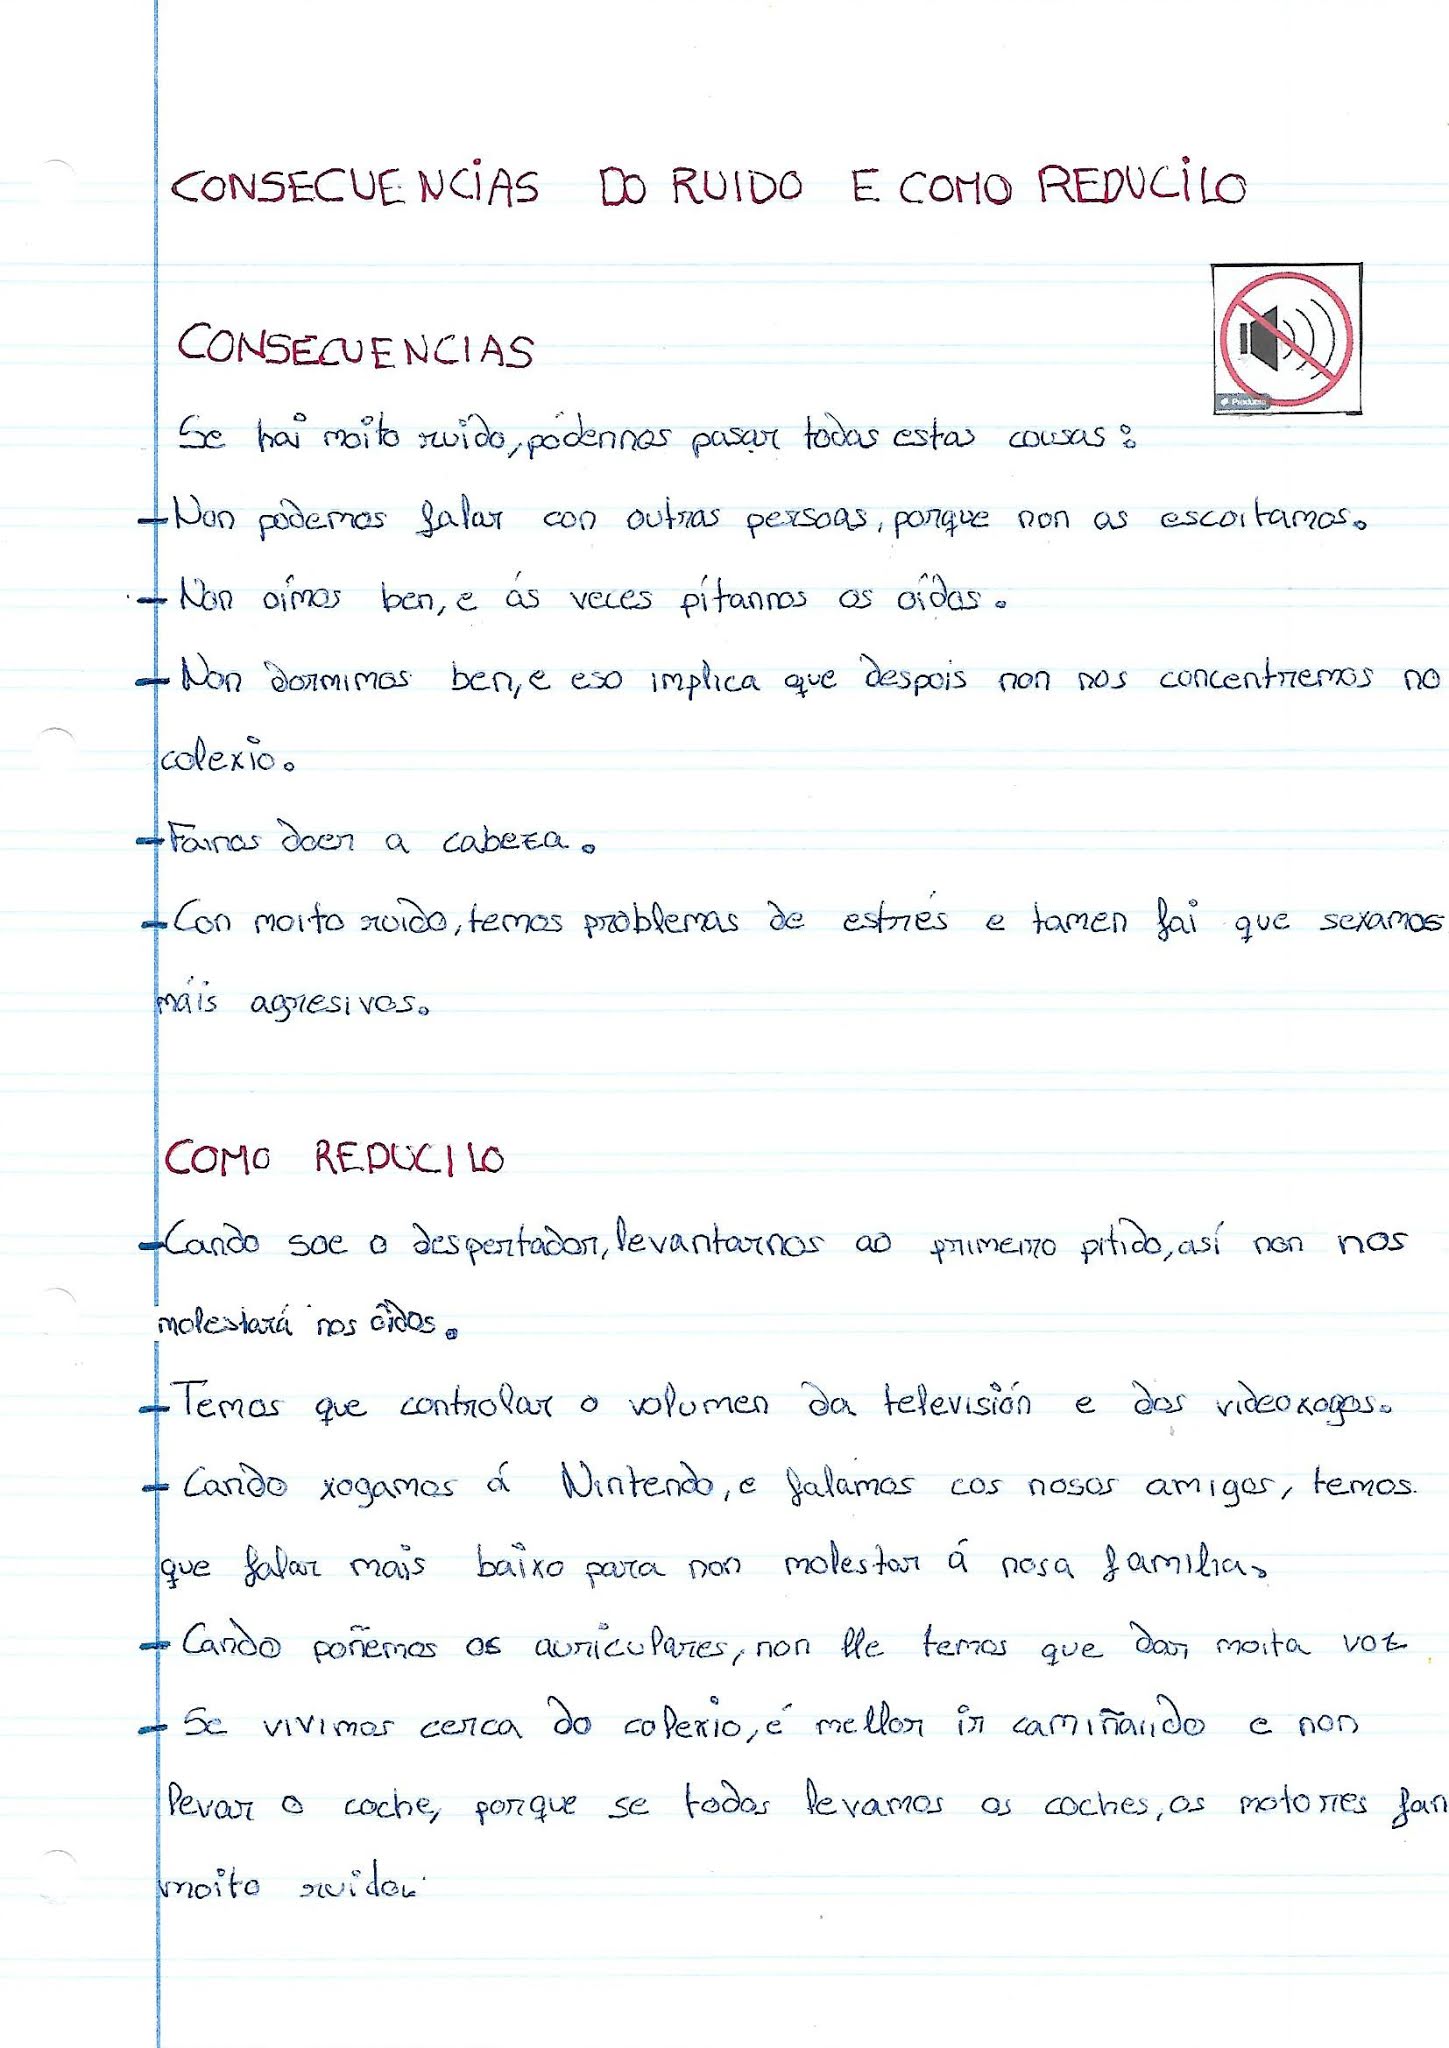 CONSECUENCIAS DO RUIDO E COMO REDUCILO
CONSECUENCIAS
Se hai moito ruído, pódennos pasar todas estas cousas:
- Non podemos falar con outras persoas, porque non as escoitamos.
- Non oímos ben, e ás veces pítannos os oídos.
- Non dormimos ben, e eso implica que despois non nos concentremos no
colexio.
- Fainos doer a cabeza.
- Con moito ruido, temos problemas de estrés e tamen fai que sexamos
máis agresivos.
COMO REDUCILO
- Cando soe o despertador, levantarnos ao primeiro pitido, así non nos
molestará nos oídos.
- Temos que controlar o volumen da televisión e dos videoxogos.
- Cando xogamos á Nintendo, e falamos cos nosos amigos, temos
que falar mais baixo para non molestar á nosa familia.
- Cando poñemos os auriculares, non lle temos que dar moita voz
- Se vivimos cerca do colexio, é mellor ir camiñando e non
levar o coche, porque se todos levamos os coches, os motores fan
moito ruido.